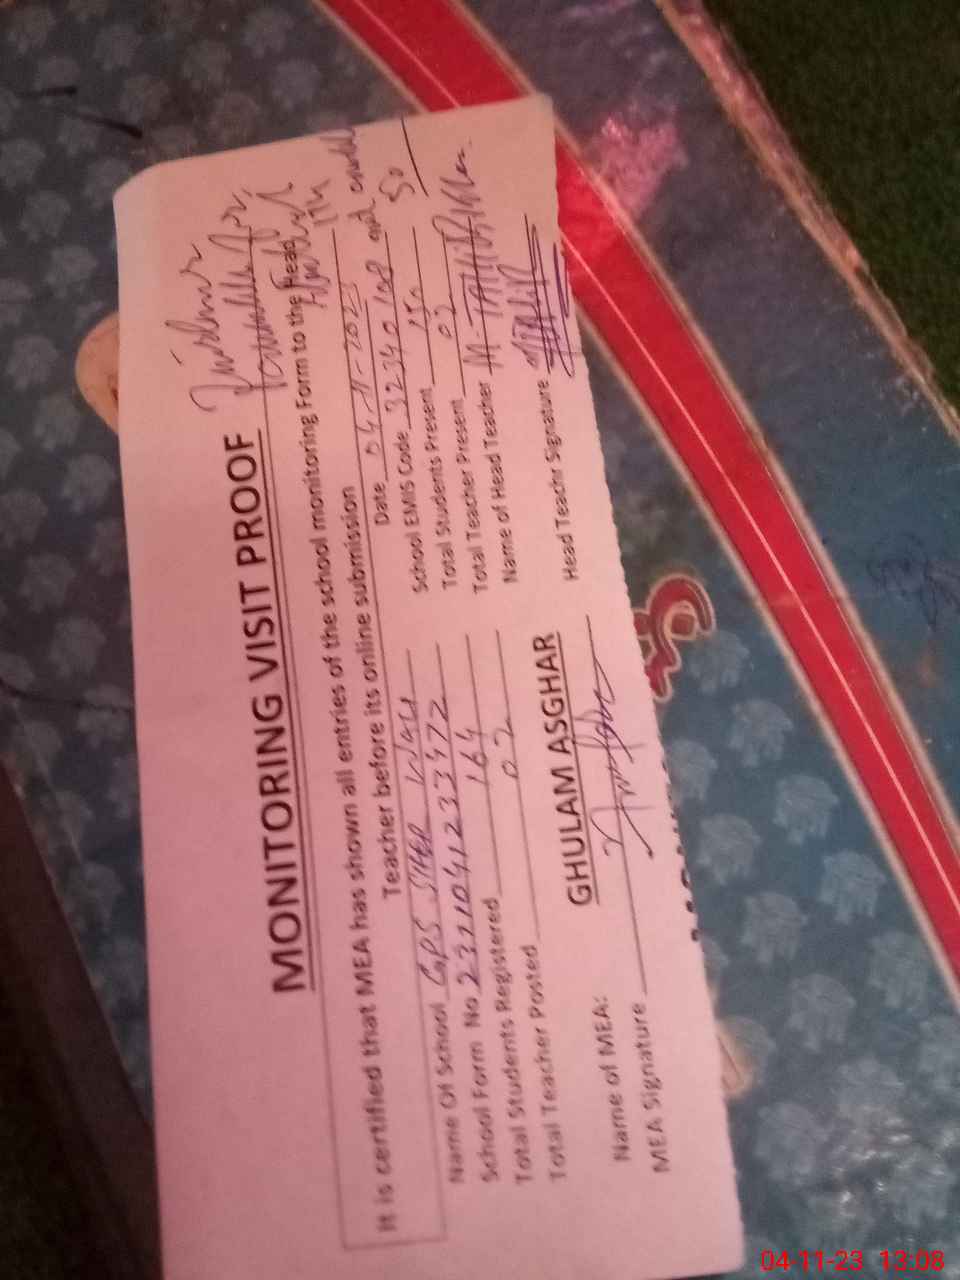 MONITORING VISIT PROOF
It is certified that MEA has shown all entries of the school monitoring Form to the Head
Teacher before its online submission
Date 04-11-2023
Name Of School GPS SHER WALI
School EMIS Code 32340108
School Form No 2311041233472
Total Students Present 150
Total Students Registered 164
Total Teacher Present 02
Total Teacher Posted 02
Name of Head Teacher M. TAHIR
Name of MEA: GHULAM ASGHAR
Head Teachr Signature
MEA Signature
50
04-11-23 13:08